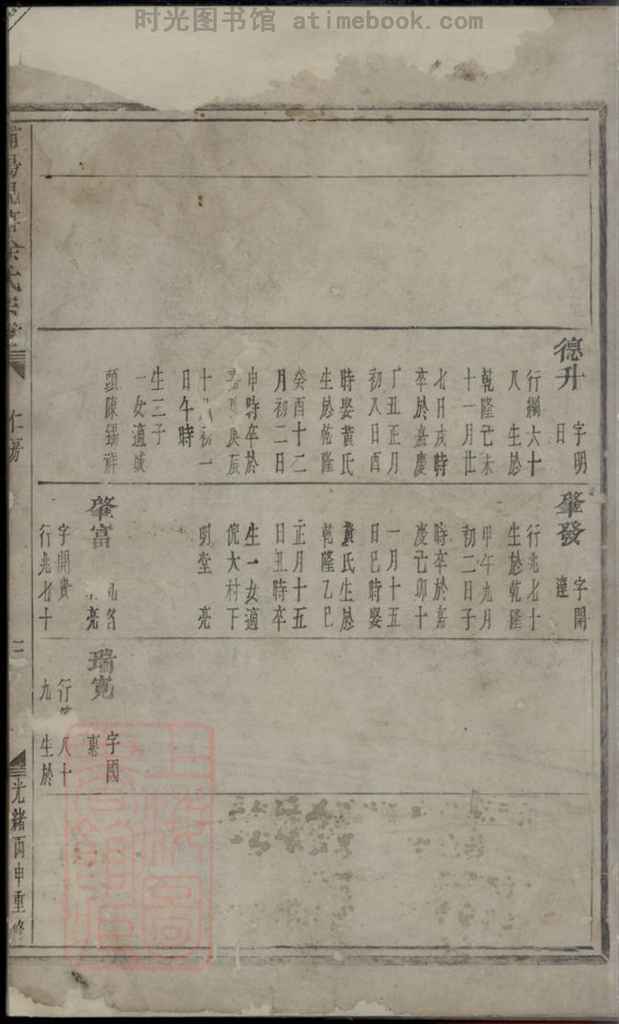 时光图书馆 atimebook.com
德升
字明
日
行綱六十
八 生於
乾隆己未
十一月廿
七日亥時
卒於嘉慶
丁丑正月
初八日酉
時娶黄氏
生於乾隆
癸酉十二
月初二日
申時卒於
庚辰
十 初一
日午時
生三子
一女適城
頭陳錫祥
肇發
字開
達
行兆七十
生於乾隆
甲午九月
初二日子
時卒於嘉
慶己卯十
一月十五
日巳時娶
黄氏生於
乾隆乙巳
正月十五
日丑時卒
生一女適
倪大村下
明堂 亮
肇富
名
亮
字開貴
行兆七十
瑞寬
字國
惠
行 八十
九 生於
余氏宗
仁房
光緒丙申重修